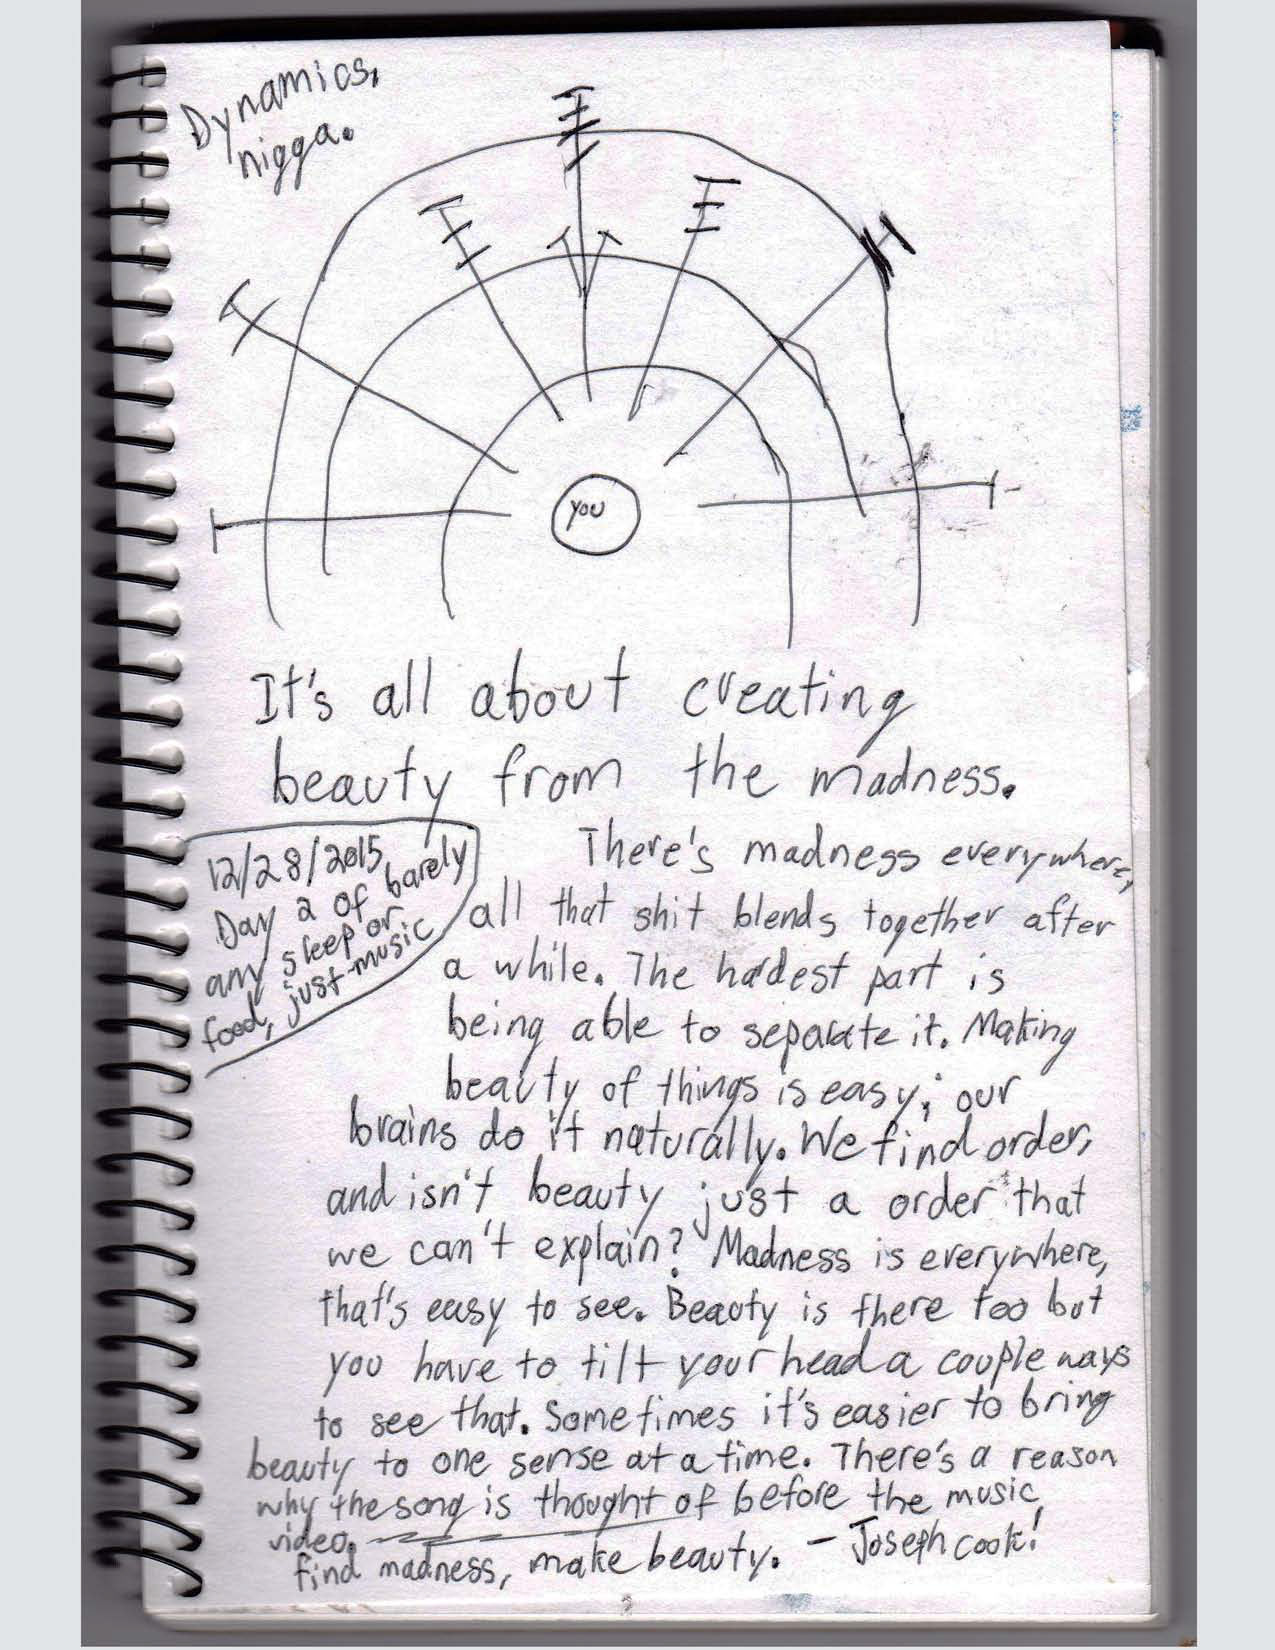 Dynamics,
nigga.
you
It's all about creating
beauty from the madness.
12/28/2015
Day 2 of barely
any sleep or
food, just music
There's madness everywhere,
all that shit blends together after
a while. The hardest part is
being able to separate it. Making
beauty of things is easy; our
brains do it naturally. We find order,
and isn't beauty just a order that
we can't explain? Madness is everywhere,
that's easy to see. Beauty is there too but
you have to tilt your head a couple ways
to see that. Sometimes it's easier to bring
beauty to one sense at a time. There's a reason
why the song is thought of before the music
video.
find madness, make beauty. - Joseph Cook!